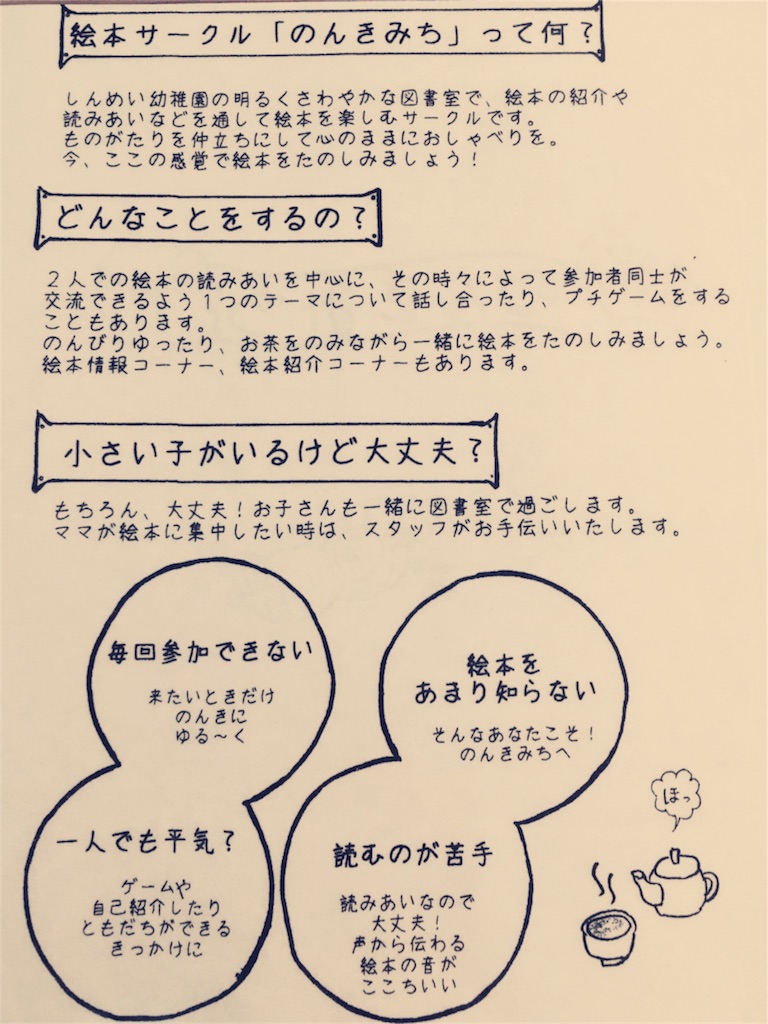 絵本サークル「のんきみち」って何？
しんめい幼稚園の明るくさわやかな図書室で、絵本の紹介や
読みあいなどを通して絵本を楽しむサークルです。
ものがたりを仲立ちにして心のままにおしゃべりを。
今、ここの感覚で絵本をたのしみましょう！
どんなことをするの？
２人での絵本の読みあいを中心に、その時々によって参加者同士が
交流できるよう１つのテーマについて話し合ったり、プチゲームをする
こともあります。
のんびりゆったり、お茶をのみながら一緒に絵本をたのしみましょう。
絵本情報コーナー、絵本紹介コーナーもあります。
小さい子がいるけど大丈夫？
もちろん、大丈夫！お子さんも一緒に図書室で過ごします。
ママが絵本に集中したい時は、スタッフがお手伝いいたします。
毎回参加できない
来たいときだけ
のんきに
ゆる〜く
絵本を
あまり知らない
そんなあなたこそ！
のんきみちへ
一人でも平気？
ゲームや
自己紹介したり
ともだちができる
きっかけに
読むのが苦手
読みあいなので
大丈夫！
声から伝わる
絵本の音が
ここちいい
ほっ